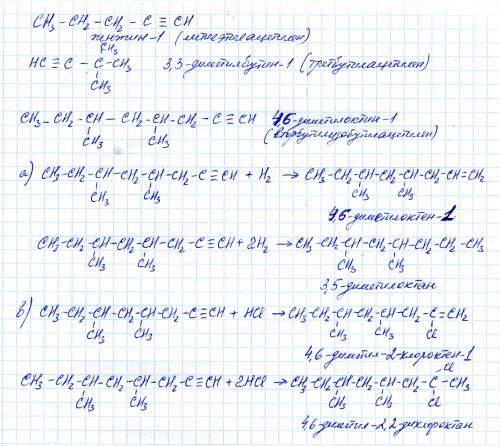 CH₃ – CH₂ – CH₂ – C ≡ CH
пентин-1 (метилэтилацетилен)
CH₃
HC ≡ C – C – CH₃ 3,3-диметилбутен-1 (третбутилацетилен)
CH₃
CH₃ – CH₂ – CH – CH₂ – CH – CH₂ – C ≡ CH 4,6-диметилоктен-1
CH₃ CH₃ (вторбутилизобутилацетилен)
а) CH₃–CH₂–CH–CH₂–CH–CH₂–C≡CH + H₂ → CH₃–CH₂–CH–CH₂–CH–CH₂–CH=CH₂
CH₃ CH₃ CH₃ CH₃
4,6-диметилоктен-1
CH₃–CH₂–CH–CH₂–CH–CH₂–C≡CH + 2H₂ → CH₃–CH₂–CH–CH₂–CH–CH₂–CH₂–CH₃
CH₃ CH₃ CH₃ CH₃
3,5-диметилоктан
в) CH₃–CH₂–CH–CH₂–CH–CH₂–C≡CH + HCl → CH₃–CH₂–CH–CH₂–CH–CH₂–C=CH₂
CH₃ CH₃ CH₃ CH₃ Cl
4,6-диметил-2-хлороктен-1
Cl
CH₃–CH₂–CH–CH₂–CH–CH₂–C≡CH + 2HCl → CH₃–CH₂–CH–CH₂–CH–CH₂–C–CH₃
CH₃ CH₃ CH₃ CH₃ Cl
4,6-диметил-2,2-дихлороктан